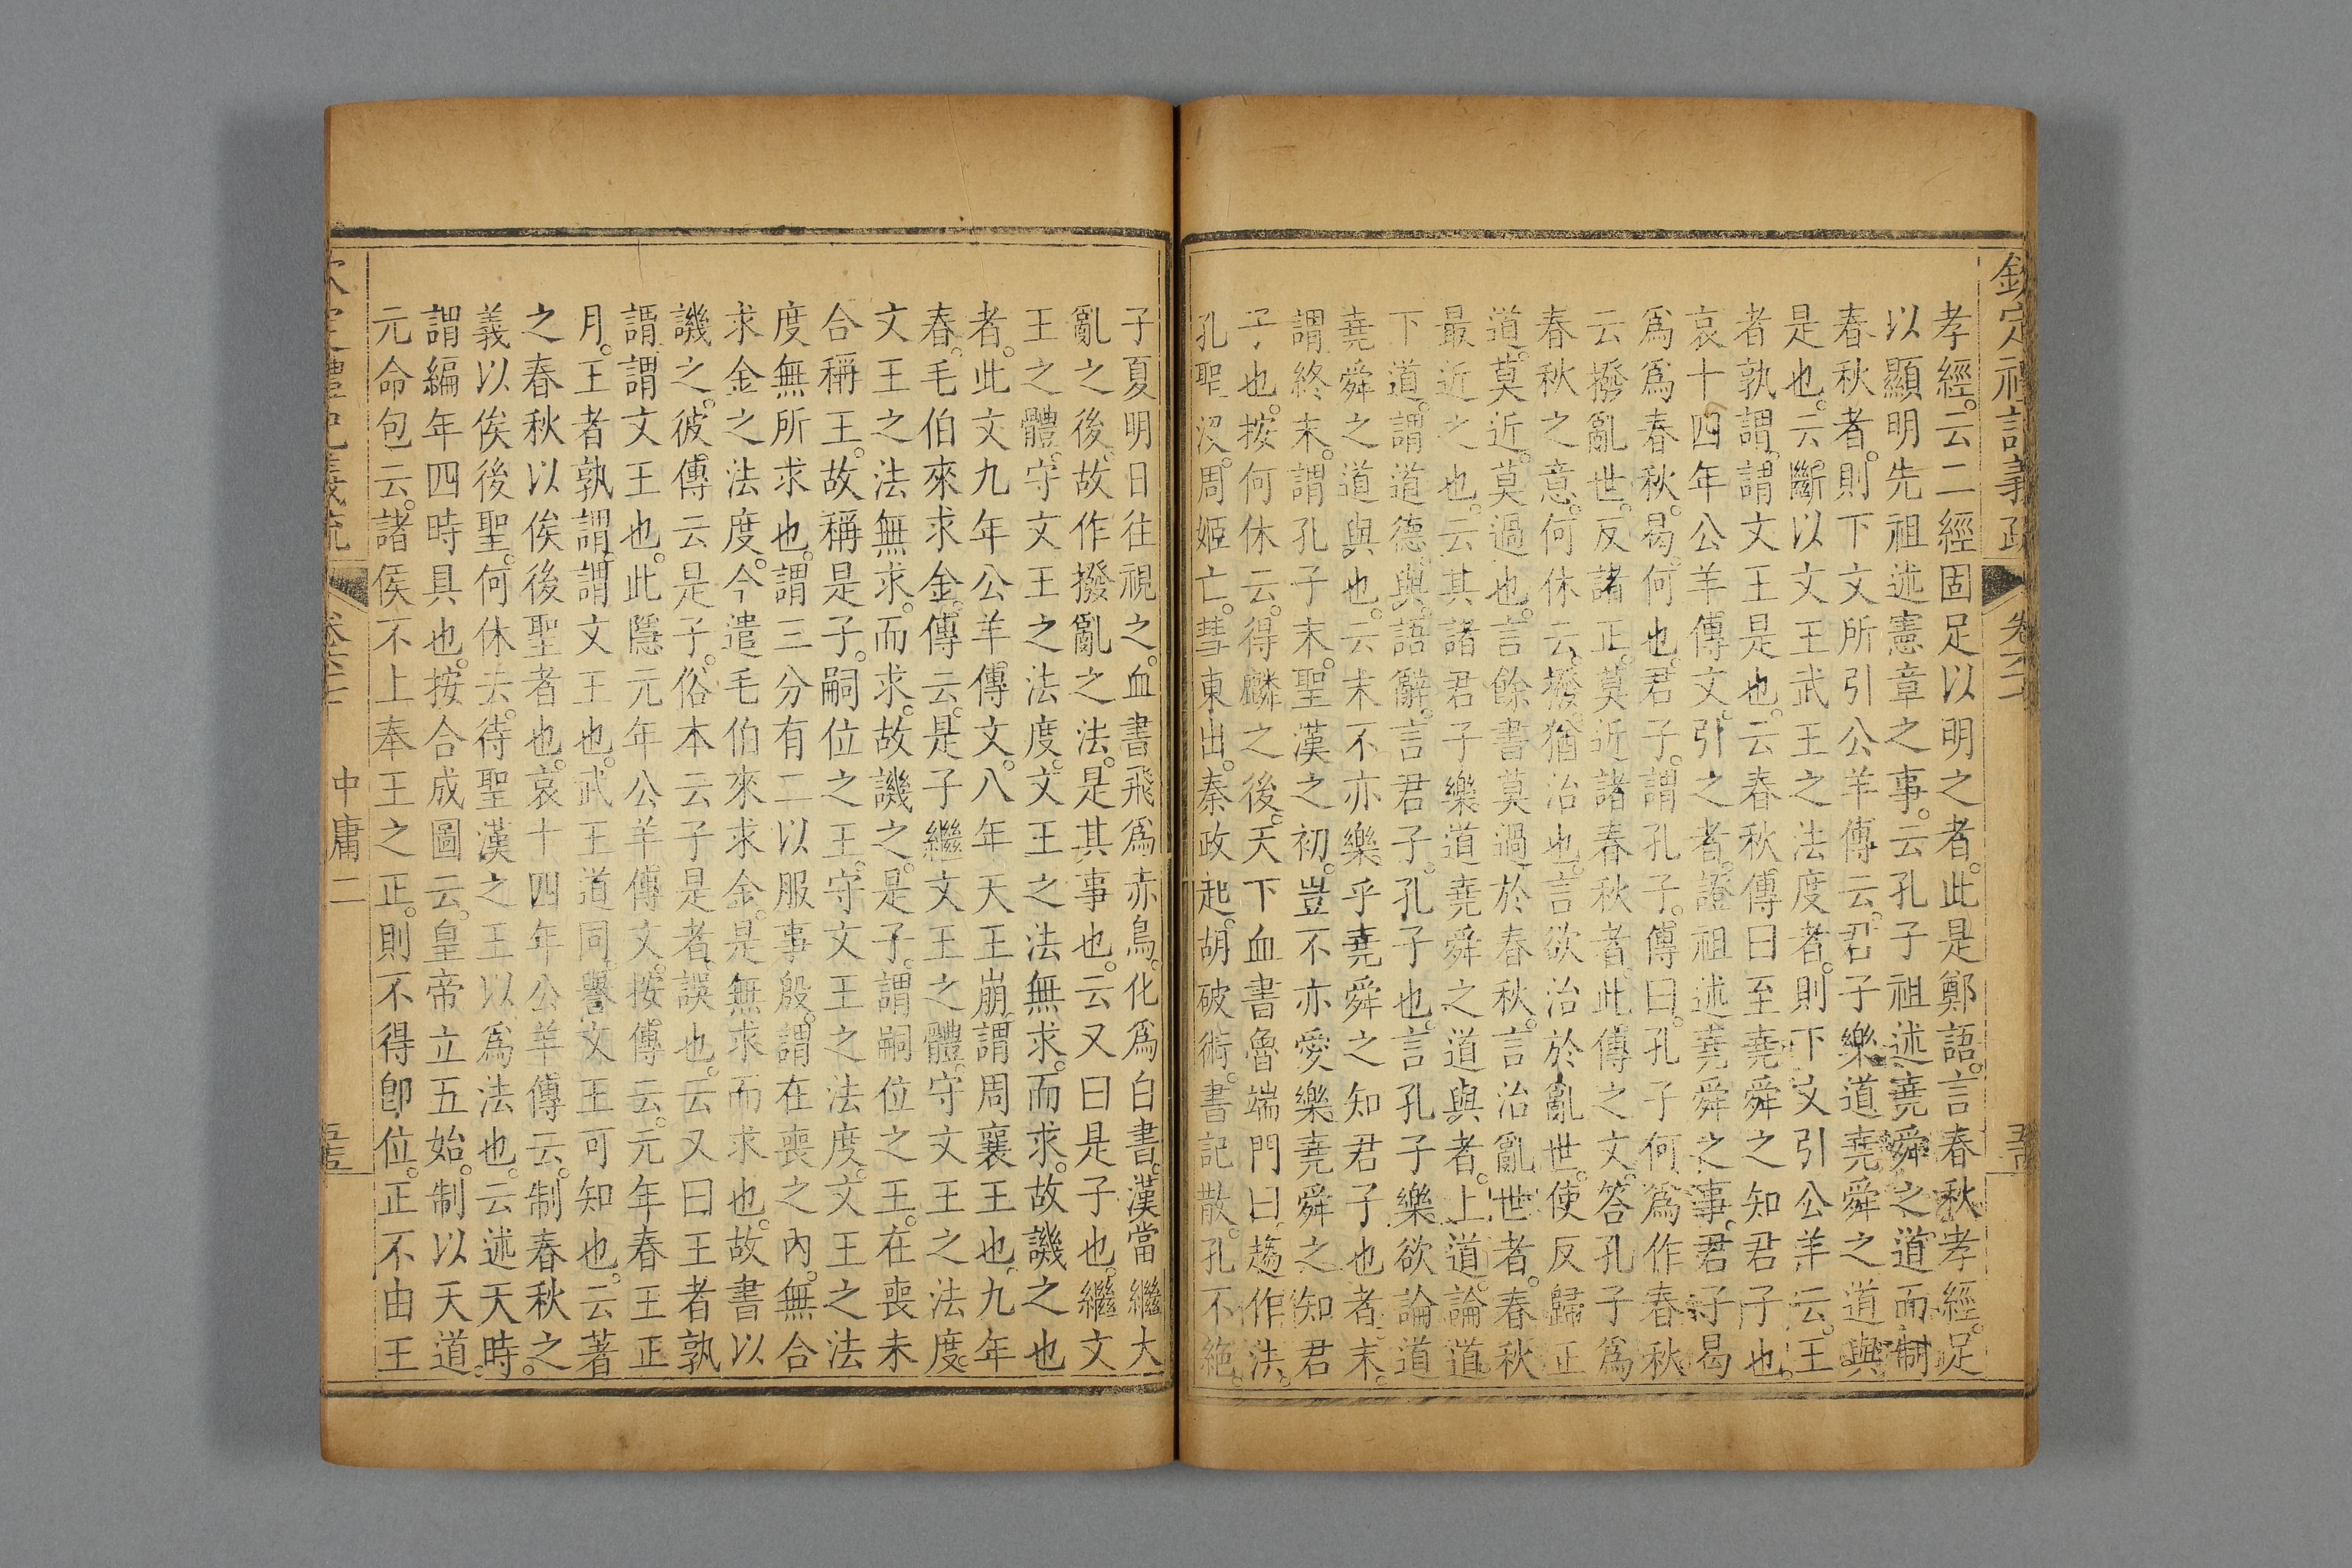 欽定禮記義疏 卷六十
孝經云二經固足以明之者此是鄭語言春秋孝經足
以顯明先祖述憲章之事云孔子祖述堯舜之道而制
春秋者則下文所引公羊傳云君子樂道堯舜之道與
是也云斷以文王武王之法度者則下文引公羊云王
者孰謂謂文王是也云春秋傳曰至堯舜之知君子也
哀十四年公羊傳文引之者證祖述堯舜之事君子曷
爲爲春秋曷何也君子謂孔子傳曰孔子何爲作春秋
云撥亂世反諸正莫近諸春秋者此傳之文答孔子爲
春秋之意何休云撥猶治也言欲治於亂世使反歸正
道莫近莫過也言餘書莫過於春秋言治亂世者春秋
最近之也云其諸君子樂道堯舜之道與者上道論道
下道謂道德與語辭言君子孔子也言孔子樂欲論道
堯舜之道與也云末不亦樂乎堯舜之知君子也者末
謂終末謂孔子末聖漢之初豈不亦愛樂堯舜之知君
子也按何休云得麟之後天下血書魯端門曰趨作法
孔聖沒周姬亡彗東出秦政起胡破術書記散孔不絕
子夏明日往視之血書飛爲赤鳥化爲白書漢當繼大
亂之後故作撥亂之法是其事也云又曰是子也繼文
王之體守文王之法度文王之法無求而求故譏之也
者此文九年公羊傳文八年天王崩謂周襄王也九年
春毛伯來求金傳云是子繼文王之體守文王之法度
文王之法無求而求故譏之是子謂嗣位之王在喪未
合稱王故稱是子嗣位之王守文王之法度文王之法
度無所求也謂三分有二以服事殷謂在喪之內無合
求金之法度今遣毛伯來求金是無求而求也故書以
譏之彼傳云是子俗本云子是者誤也云又曰王者孰
謂謂文王也此隱元年公羊傳文按傳云元年春王正
月王者孰謂謂文王也武王道同舉文王可知也云著
之春秋以俟後聖者也哀十四年公羊傳云制春秋之
義以俟後聖何休云待聖漢之王以爲法也云述天時
謂編年四時具也按合成圖云皇帝立五始制以天道
元命包云諸侯不上奉王之正則不得卽位正不由王
中庸二